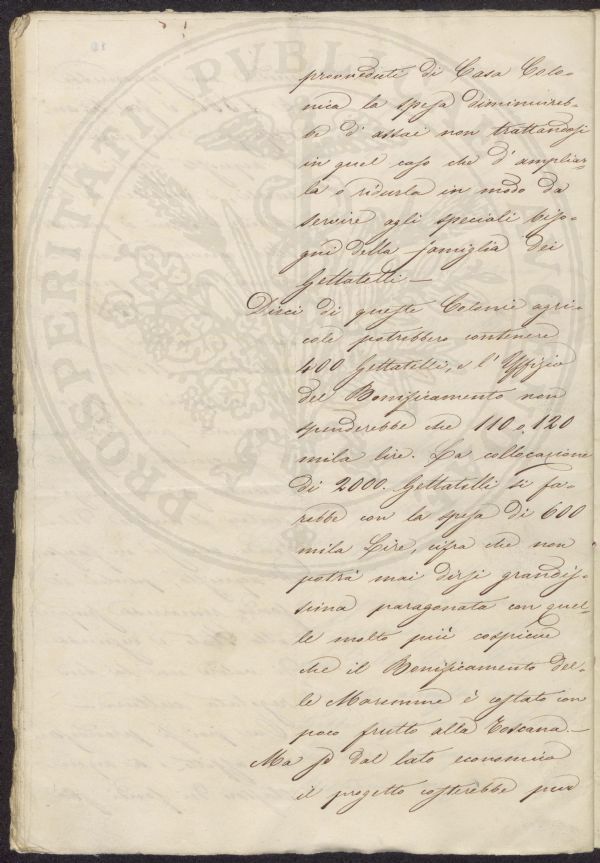 PROSPERITATI PVBLICAE
provvedute di Casa Colo-
nica la spesa diminuireb-
be d'assai non trattandosi
in quel caso che d'ampliar-
la o ridurla in modo da
servire agli speciali biso-
gni della famiglia dei
Gettatelli —
Dieci di queste Colonie agri-
cole potrebbero contenere
400 Gettatelli, e l'Uffizio
del Bonificamento non
spenderebbe che 110 o 120
mila lire. La collocazione
di 2000. Gettatelli si fa-
rebbe con la spesa di 600
mila Lire, cifra che non
potrà mai dirsi grandis-
sima paragonata con quel-
le molto più cospicue
che il Bonificamento del-
le Maremme è costato con
poco frutto alla Toscana. —
Ma se dal lato economico
il progetto costerebbe poco